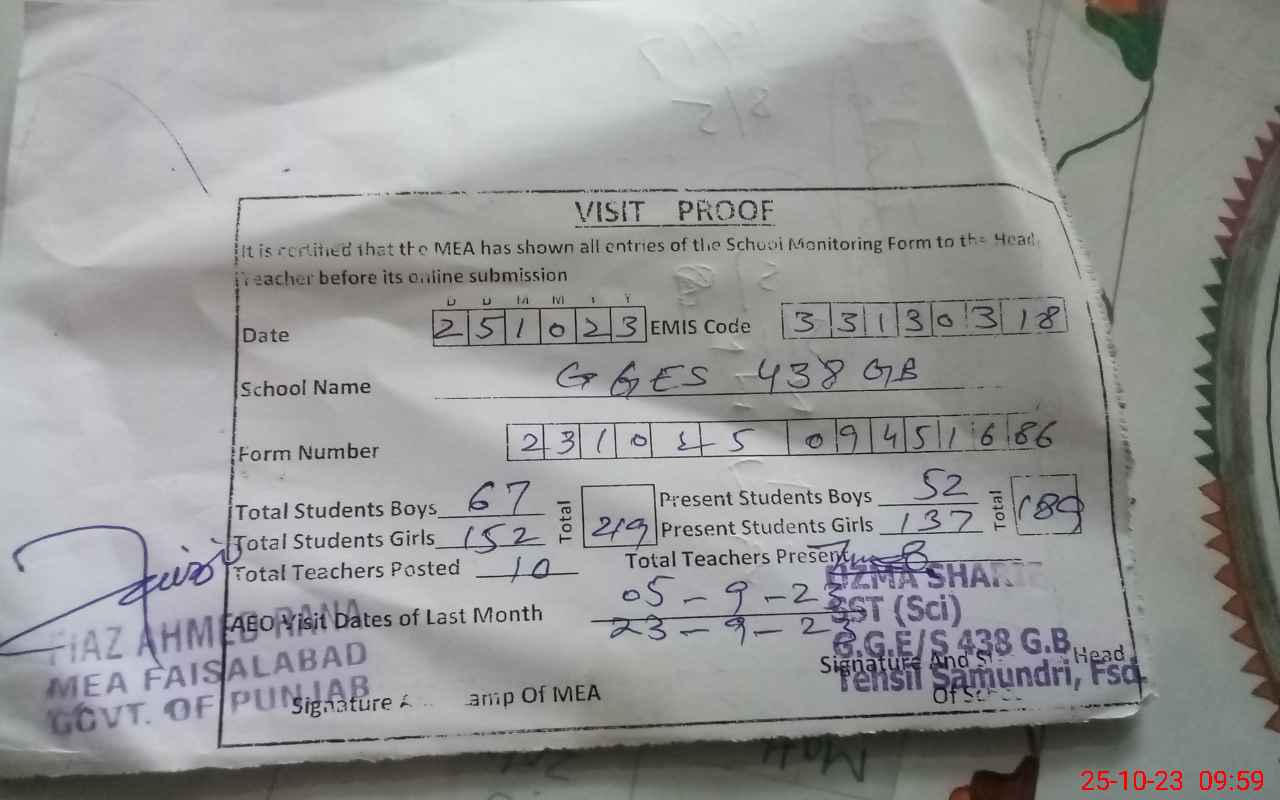 VISIT PROOF
It is certified that the MEA has shown all entries of the School Monitoring Form to the Head
Teacher before its online submission
D D M M Y Y
Date 251023 EMIS Code 33130318
School Name GGES 438 GB
Form Number 2310 15 09451686
Total Students Boys 67 Total 219 Present Students Boys 52 Total 189
Total Students Girls 152 Present Students Girls 137
Total Teachers Posted 10 Total Teachers Present 8
AEO Visit Dates of Last Month 05-9-23
23-9-23
FIAZ AHMED RANA
MEA FAISALABAD
GOVT. OF PUNJAB
Signature amp Of MEA
UZMA
SST (Sci)
G.G.E/S 438 G.B
Tehsil Samundri, Fsd
Signature And Head
Of
25-10-23 09:59